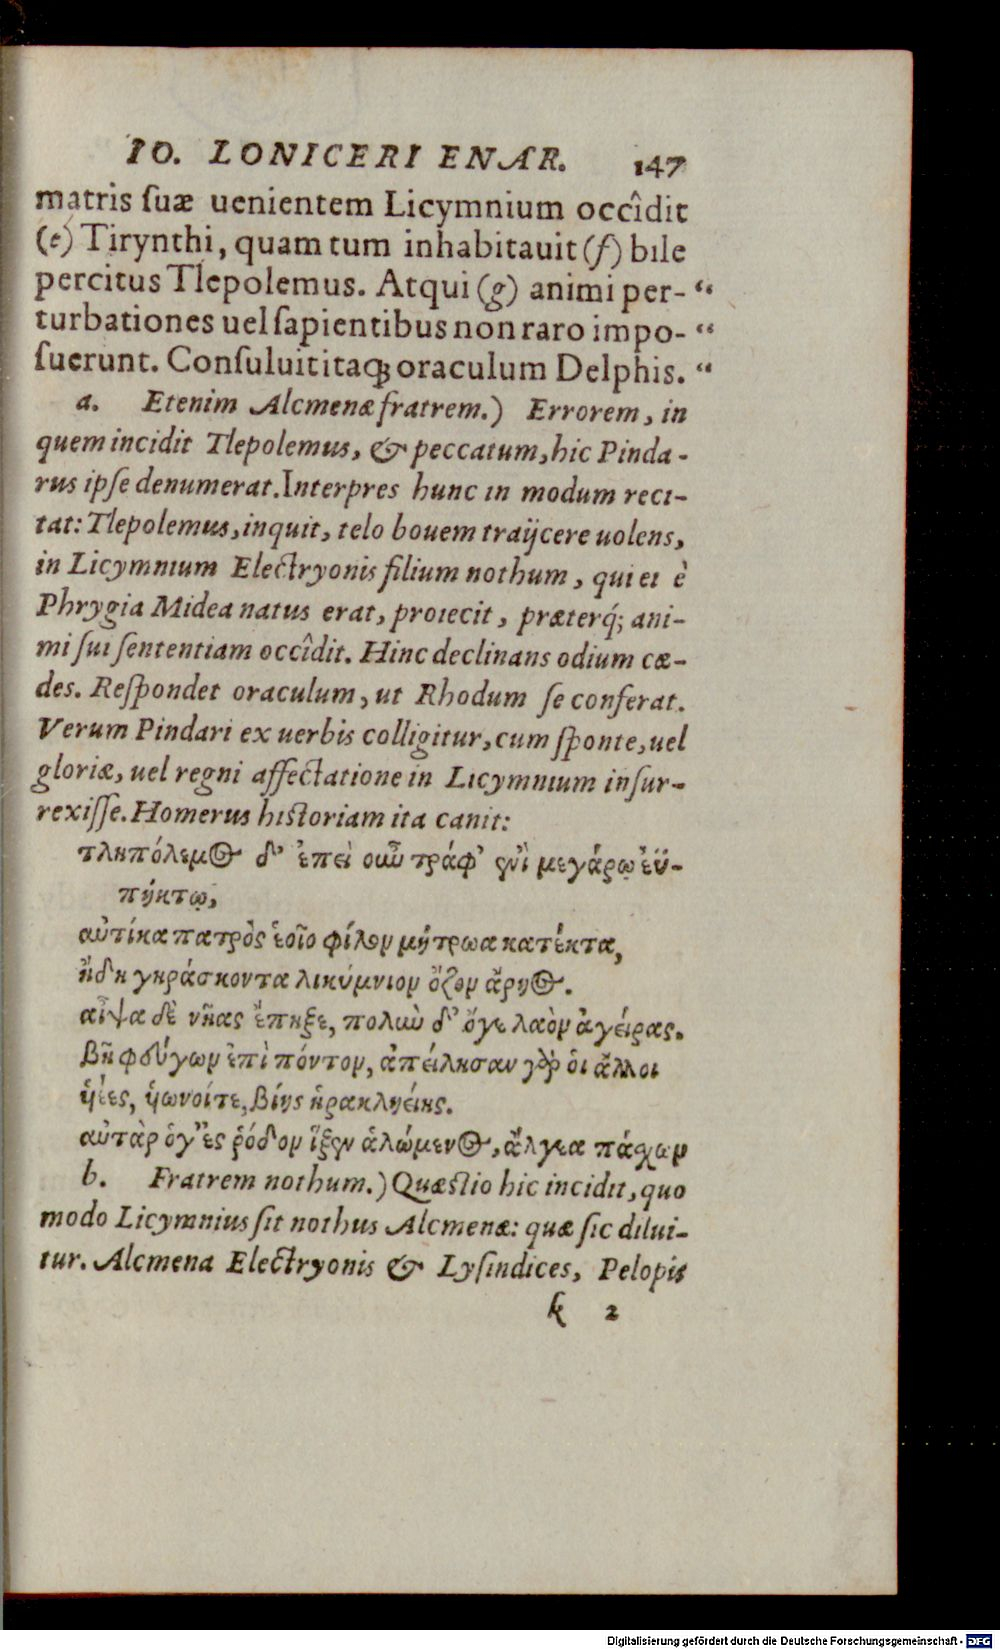 IO. LONICERI ENAR. 147
matris ſuæ uenientem Licymnium occîdit
(e) Tirynthi, quam tum inhabitauit (f) bile
percitus Tlepolemus. Atqui (g) animi per- “
turbationes uel ſapientibus non raro impo- “
ſuerunt. Conſuluit itaq; oraculum Delphis. “
a. Etenim Alcmenæ fratrem.) Errorem, in
quem incidit Tlepolemus, & peccatum, hic Pinda-
rus ipſe denumerat. Interpres hunc in modum reci-
tat: Tlepolemus, inquit, telo bouem traijcere uolens,
in Licymnium Electryonis filium nothum, qui ei è
Phrygia Midea natus erat, proiecit, præterq́; ani-
mi ſui ſententiam occîdit. Hinc declinans odium cæ-
des. Reſpondet oraculum, ut Rhodum ſe conferat.
Verum Pindari ex uerbis colligitur, eum ſponte, uel
gloriæ, uel regni affectatione in Licymnium inſur-
rexiſſe. Homerus hiſtoriam ita canit:
τληπόλεμος δ’ ἐπεὶ οὖν τράφ’ ἐνὶ μεγάρῳ ἐϋ-
πήκτῳ,
αὐτίκα πατρὸς ἑοῖο φίλον μήτρωα κατέκτα,
ἤδη γηράσκοντα λικύμνιον ὄζον ἄρηος.
αἶψα δὲ νῆας ἔπηξε, πολὺν δ’ ὅγε λαὸν ἀγείρας.
βῆ φεύγων ἐπὶ πόντον, ἀπείλησαν γὰρ οἱ ἄλλοι
ἡέες, ἡωνοίτε, βίης ἡρακληείης.
αὐτὰρ ὁγ’ ἐς ῥόδον ἷξεν ἀλώμενος, ἄλγεα πάχων
b. Fratrem nothum.) Quæstio hic incidit, quo
modo Licymnius ſit nothus Alcmenæ: quæ ſic dilui-
tur. Alcmena Electryonis & Lyſindices, Pelopis
k 2
Digitalisierung gefördert durch die Deutsche Forschungsgemeinschaft - DFG